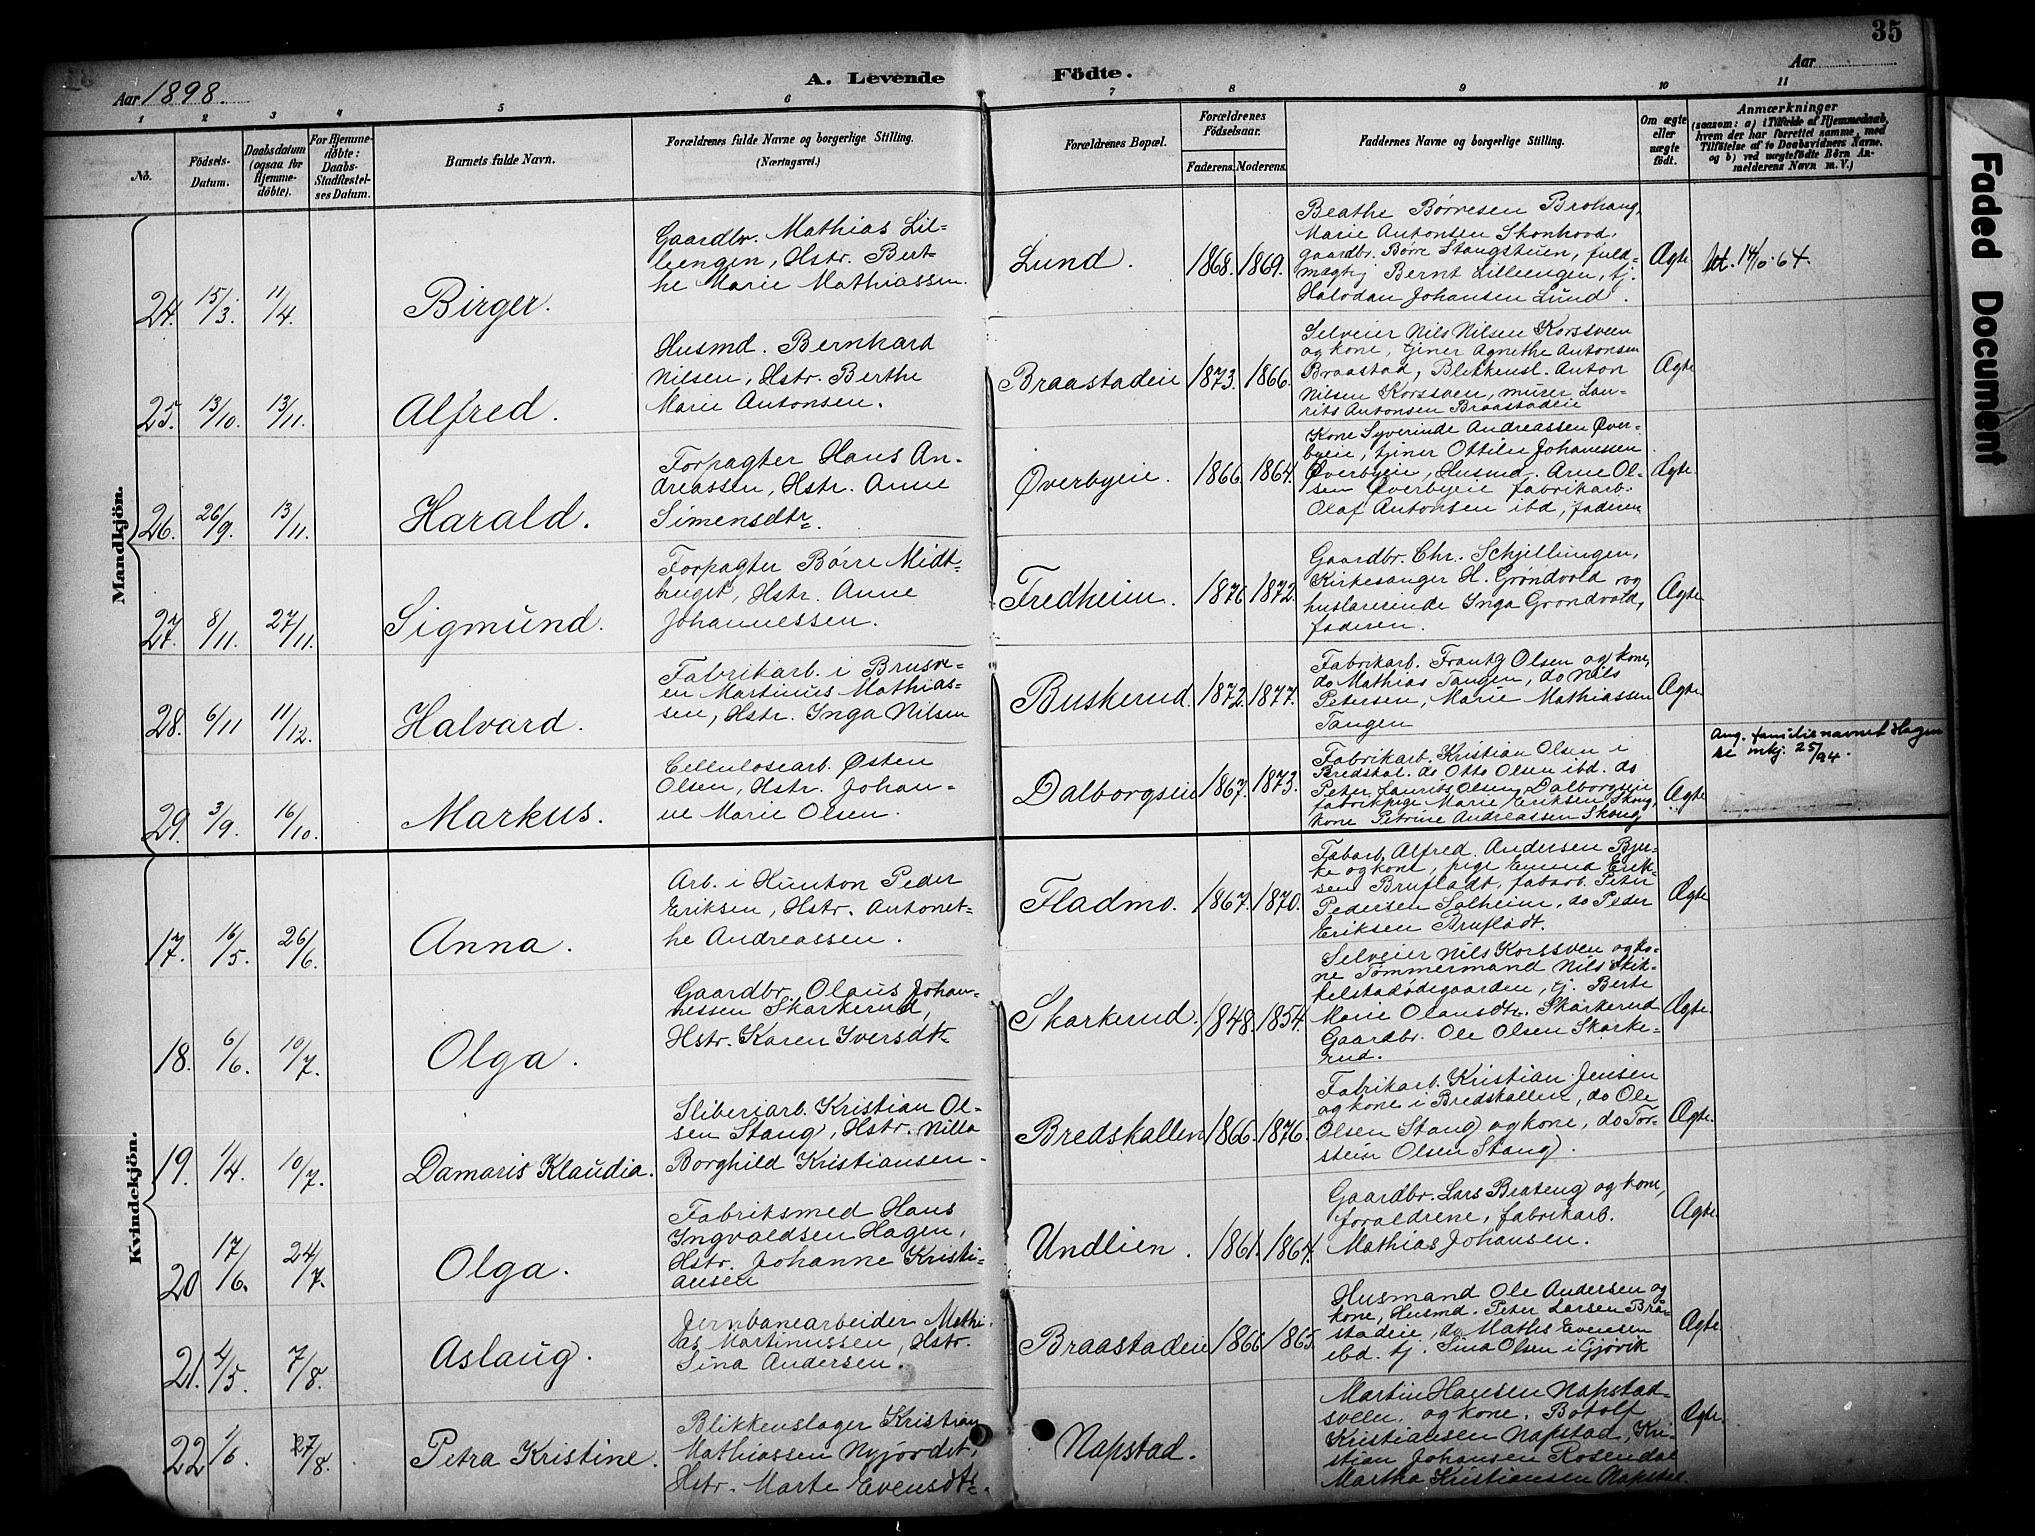 Aar 1898.
A. Levende Födte.
Aar
35
1 2 3 4 5 6 7 8 9 10 11
No.
Födsels-
Datum.
Daabsdatum
(ogsaa for
Hjemme-
döbte).
For Hjemme-
döbte:
Daabs-
Stadfæstel-
ses Datum.
Barnets fulde Navn.
Forældrenes fulde Navne og borgerlige Stilling.
(Næringsvei.)
Forældrenes Bopæl.
Forældrenes
Födselsaar.
Faderens. Moderens.
Faddernes Navne og borgerlige Stilling.
Om ægte
eller
uægte
födt.
Anmærkninger
(saasom: a) i Tilfælde af Hjemmedaab,
hvem der har forrettet samme, med
Tilföielse af to Daabsvidners Navne.
og b) ved uægtefödte Börn An-
melderens Navn m. V.)
Faded Document
Mandkjön.
24. 15/3. 11/4. Birger.
Gaardbr. Mathias Lil-
leengen, Hstr. Bert-
he Marie Mathiassen.
Lund. 1868. 1869.
Beathe Børresen Brohaug,
Marie Antonsen
gaardbr. Børre Stangstuen, fuld-
mægtig Bernt Lilleengen, tj.
Halvdan Johansen Lund.
Ægte
Ut. 14/10-64.
25. 13/10. 13/11. Alfred.
Husmd. Bernhard
Nilsen, Hstr. Berthe
Marie Antonsen.
Braastadeie 1873. 1866.
Selveier Nils Nilsen Korssveen
og kone, tjener Agnethe Antonsen
Braastad, Blikkensl. Anton
Nilsen Korssveen, murer Lau-
rits Antonsen Braastadeie
Ægte
26. 26/9. 13/11. Harald.
Forpagter Hans An-
dreassen, Hstr. Anne
Simensdtr.
Øverbyeie. 1866. 1864.
Kone Syverinde Andreassen Øver-
byeie, tjener Ottilie Johannessen
Øverbyeie, Husmd. Arne Ol-
sen Øverbyeie fabrikarb.
Olaf Antonsen ibd, faderen
Ægte
27. 8/11. 27/11. Sigmund.
Forpagter Børre Midt-
bruget, Hstr. Anne
Johannessen.
Fredheim. 1876 1872.
Gaardbr. Chr. Schjellungen,
Kirkesanger H. Grøndvold og
huslærerinde Inga Grøndvold,
faderen.
Ægte
28. 6/11 11/12. Halvard.
Fabrikarb. i Brusve-
en Martinus Mathias-
sen, Hstr. Inga Nilsen
Buskerud. 1872. 1877.
Fabrikarb. Frantz Olsen og kone,
do Mathias Tangen, do Nils
Petersen, Marie Mathiassen
Tangen
Ægte
29. 3/9. 16/10. Markus.
Cellulosearb. Østen
Olsen, Hstr. Johan-
ne Marie Olsen.
Dalborgseie 1867. 1873.
Fabrikarb. Kristian Olsen i
Bredskal. do Otto Olsen ibd. do
Peter Laurits Olsen Dalborgseie
fabrikpige Marie Eriksen Skoug,
kone Petrine Andreassen Skoug
Ægte
Ang. familienavnet Hagen
se mkj. 25/94.
Kvindekjön.
17. 16/5. 26/6. Anna.
Arb. i Hunton Peder
Eriksen, Hstr. Antonet-
he Andreassen.
Fladmo. 1867. 1870.
Fabarb. Alfred Andersen Bjer-
ke og kone, pige Emma Erik-
sen Brufladt, fabarb. Peter
Pedersen Solheim, do Peder
Eriksen Brufladt.
Ægte
18. 6/6. 10/7. Olga.
Gaardbr. Olaus Johan-
nessen Skarkerud,
Hstr. Karen Iversdtr
Skarkerud. 1848. 1854.
Selveier Nils Korssveen og ko-
ne Tømmermand Nils Skik-
kelstadødegaarden, tj. Berte
Marie Olausdtr. Skarkerud
Gaardbr. Ole Olsen Skarke-
rud.
Ægte.
19. 1/4. 10/7. Damaris Klaudia.
Sliberiarb. Kristian Ol-
sen Stang), Hstr. Nilla
Borghild Kristiansen.
Bredskallen 1866. 1876.
Fabrikarb. Kristian Jensen
og kone i Bredskallen, do Ole
Olsen Stang) og kone, do Tor-
stein Olsen Stang).
Ægte.
20 17/6. 24/7. Olga.
Fabriksmed Hans
Ingvaldsen Hagen,
Hstr. Johanne Kristi-
ansen
Undlien. 1861. 1864.
Gaardbr. Lars Brateng) og kone,
foraldrene, fabrikarb.
Mathias Johansen.
Ægte.
21. 4/5. 7/8. Aslaug.
Jernbanearbeider Mathi-
as Martinussen, Hstr.
Sina Andersen.
Braastadeie 1866 1865.
Husmand Ole Andersen og
kone, Husmd. Peter Larsen Brå-
stadeie, do Mathis Evensen
ibd. tj. Sina Olsen i Gjøvik
Ægte
22 1/6. 27/8. Petra Kristine.
Blikkenslager Kristian
Mathiassen Nyjordet,
Hstr. Marte Evensdtr.
Napstad.
Martin Hansen Napstad-
sveen. og kone. Botolf
Kristiansen Napstad, Kri-
stian Johansen Rosendal
Martha Kristiansen Napstad.
Ægte.